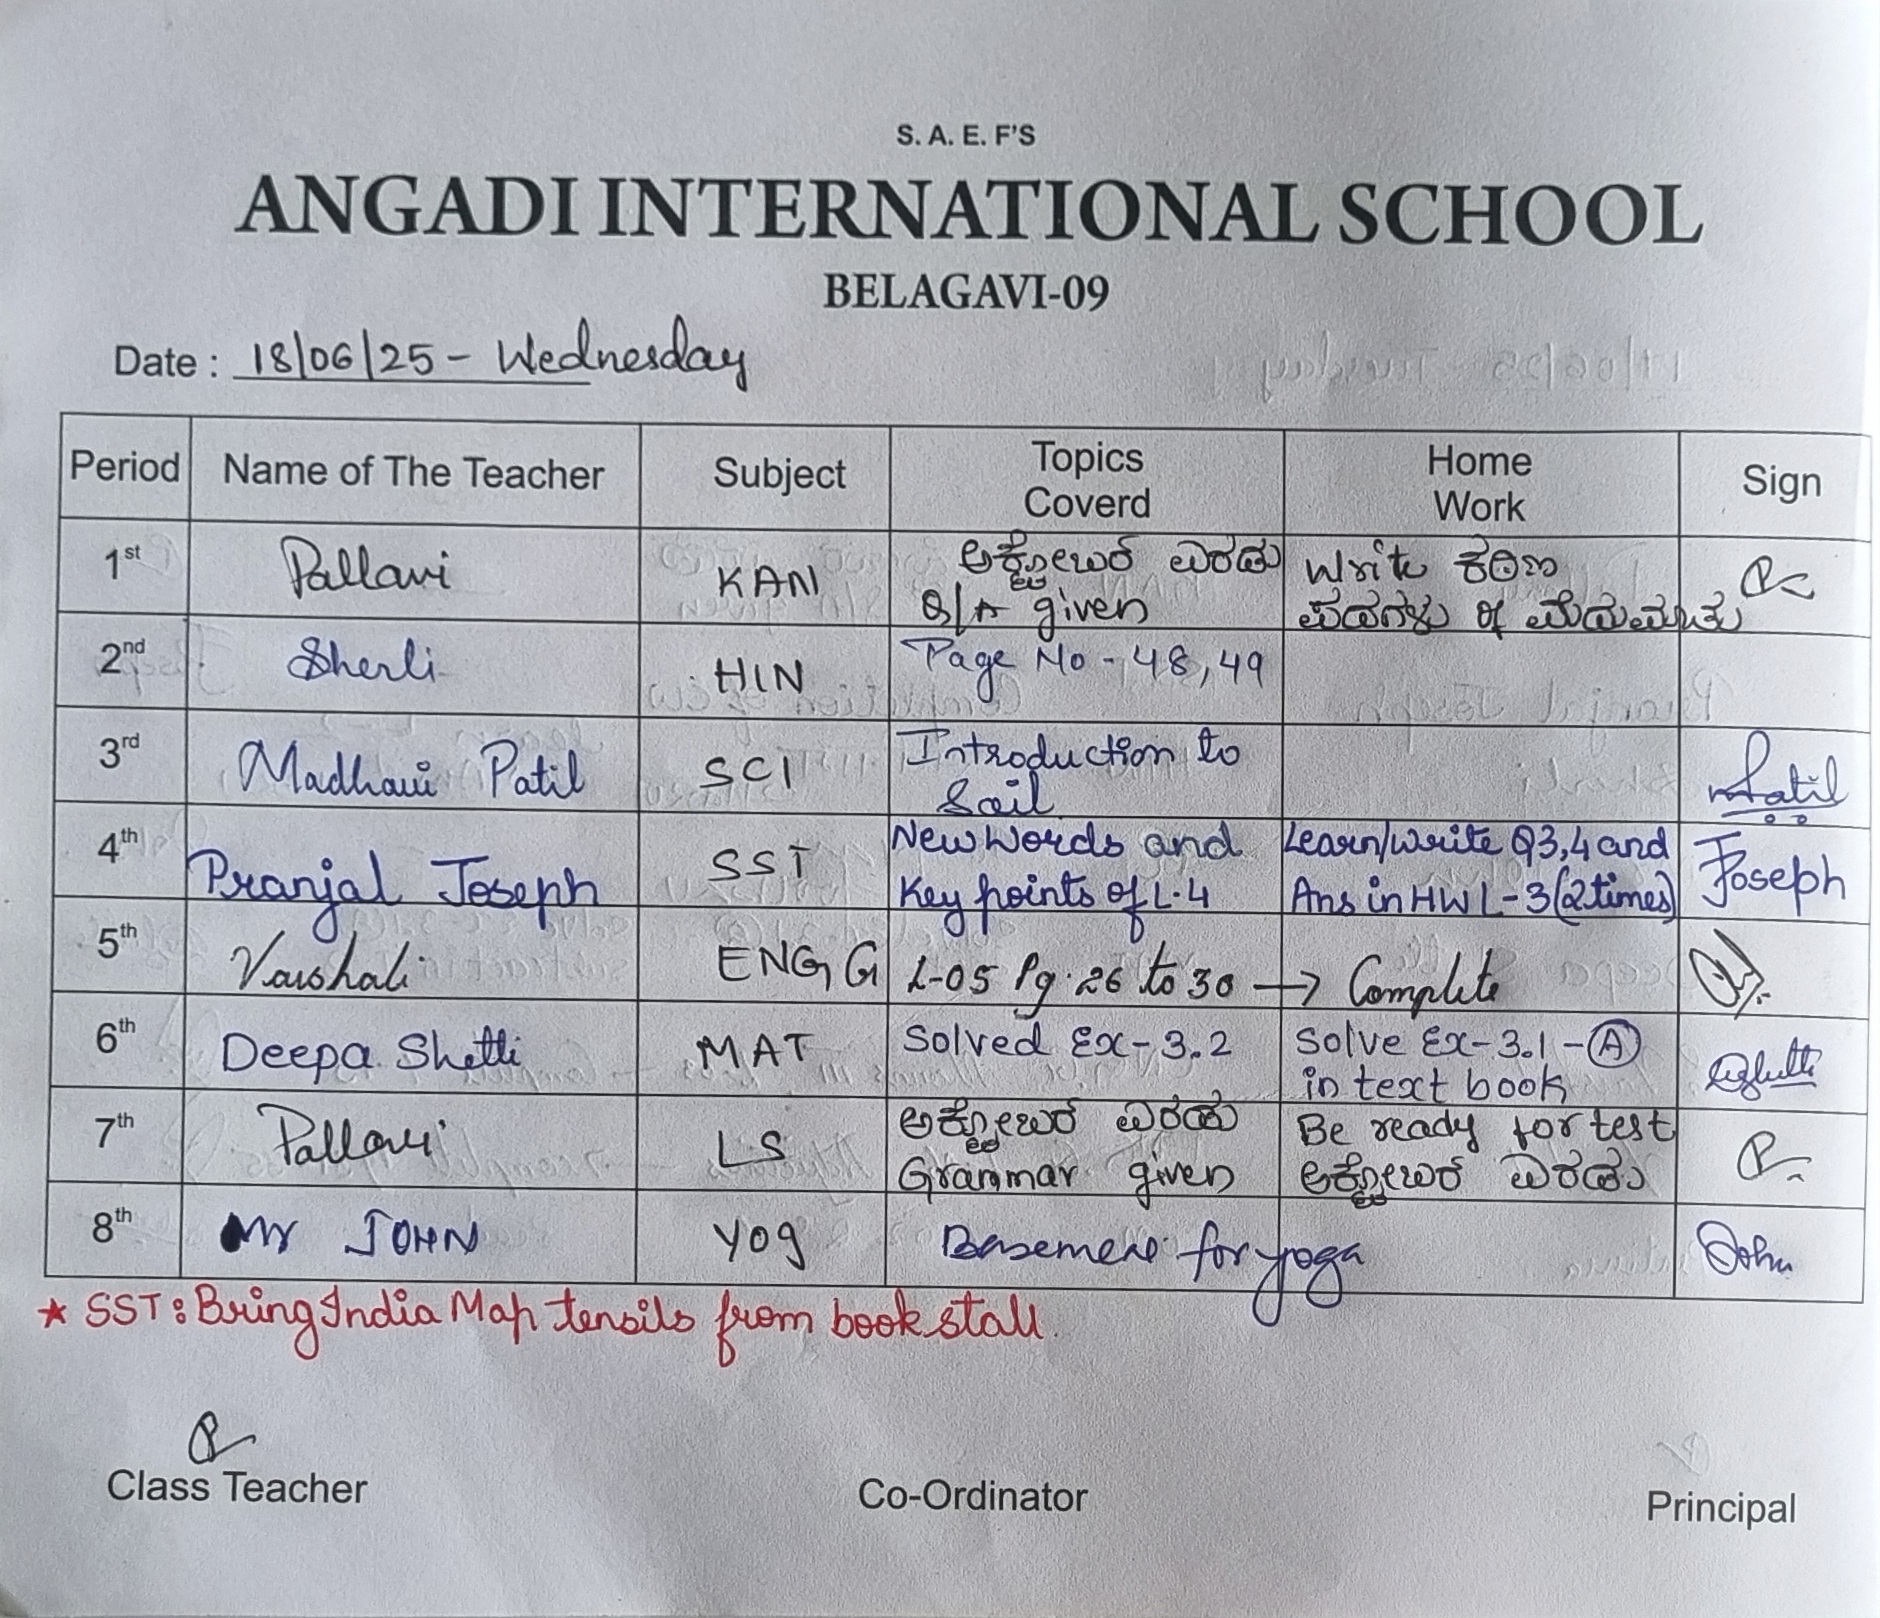 S. A. E. F'S
ANGADI INTERNATIONAL SCHOOL
BELAGAVI-09
Date : 18/06/25 - Wednesday
Period Name of The Teacher Subject Topics Coverd Home Work Sign
1st Pallavi KAN ಅಕ್ಟೋಬರ್ ಎರಡು Write ಕಠಿಣ
Q/A given ಪದಗಳು of
2nd Sherli HIN Page No - 48, 49
3rd Madhavi Patil SCI Introduction to Patil
Soil
4th Pranjal Joseph SST New words and Learn/write Q3,4 and Joseph
Key points of L.4 Ans in HW L-3 (2 times)
5th Vaishali ENG G L-05 Pg. 26 to 30 → Complete
6th Deepa Shetti MAT Solved Ex-3.2 Solve Ex-3.1 - A
in text book
7th Pallavi LS ಅಕ್ಟೋಬರ್ ಎರಡು Be ready for test
Grammar given ಅಕ್ಟೋಬರ್ ಎರಡು
8th Mr JOHN Yog for yoga John
★ SST: Bring India Map tensils from book stall.
Class Teacher Co-Ordinator Principal